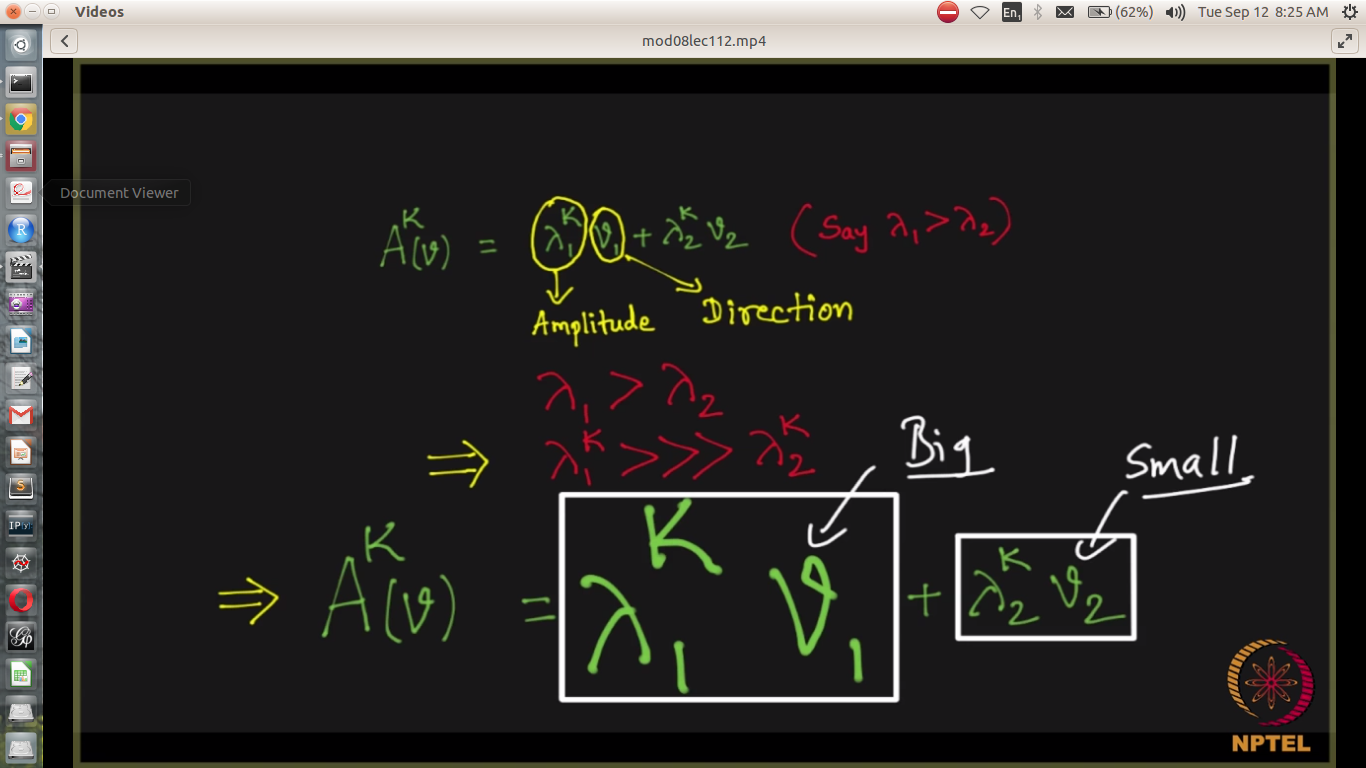 Videos
En1 (62%) Tue Sep 12 8:25 AM
mod08lec112.mp4
Document Viewer
A^K(v) = λ₁^K v₁ + λ₂^K v₂ (Say λ₁ > λ₂)
Amplitude Direction
λ₁ > λ₂
⇒ λ₁^K >>> λ₂^K
Big
Small
⇒ A^K(v) = λ₁^K v₁ + λ₂^K v₂
NPTEL